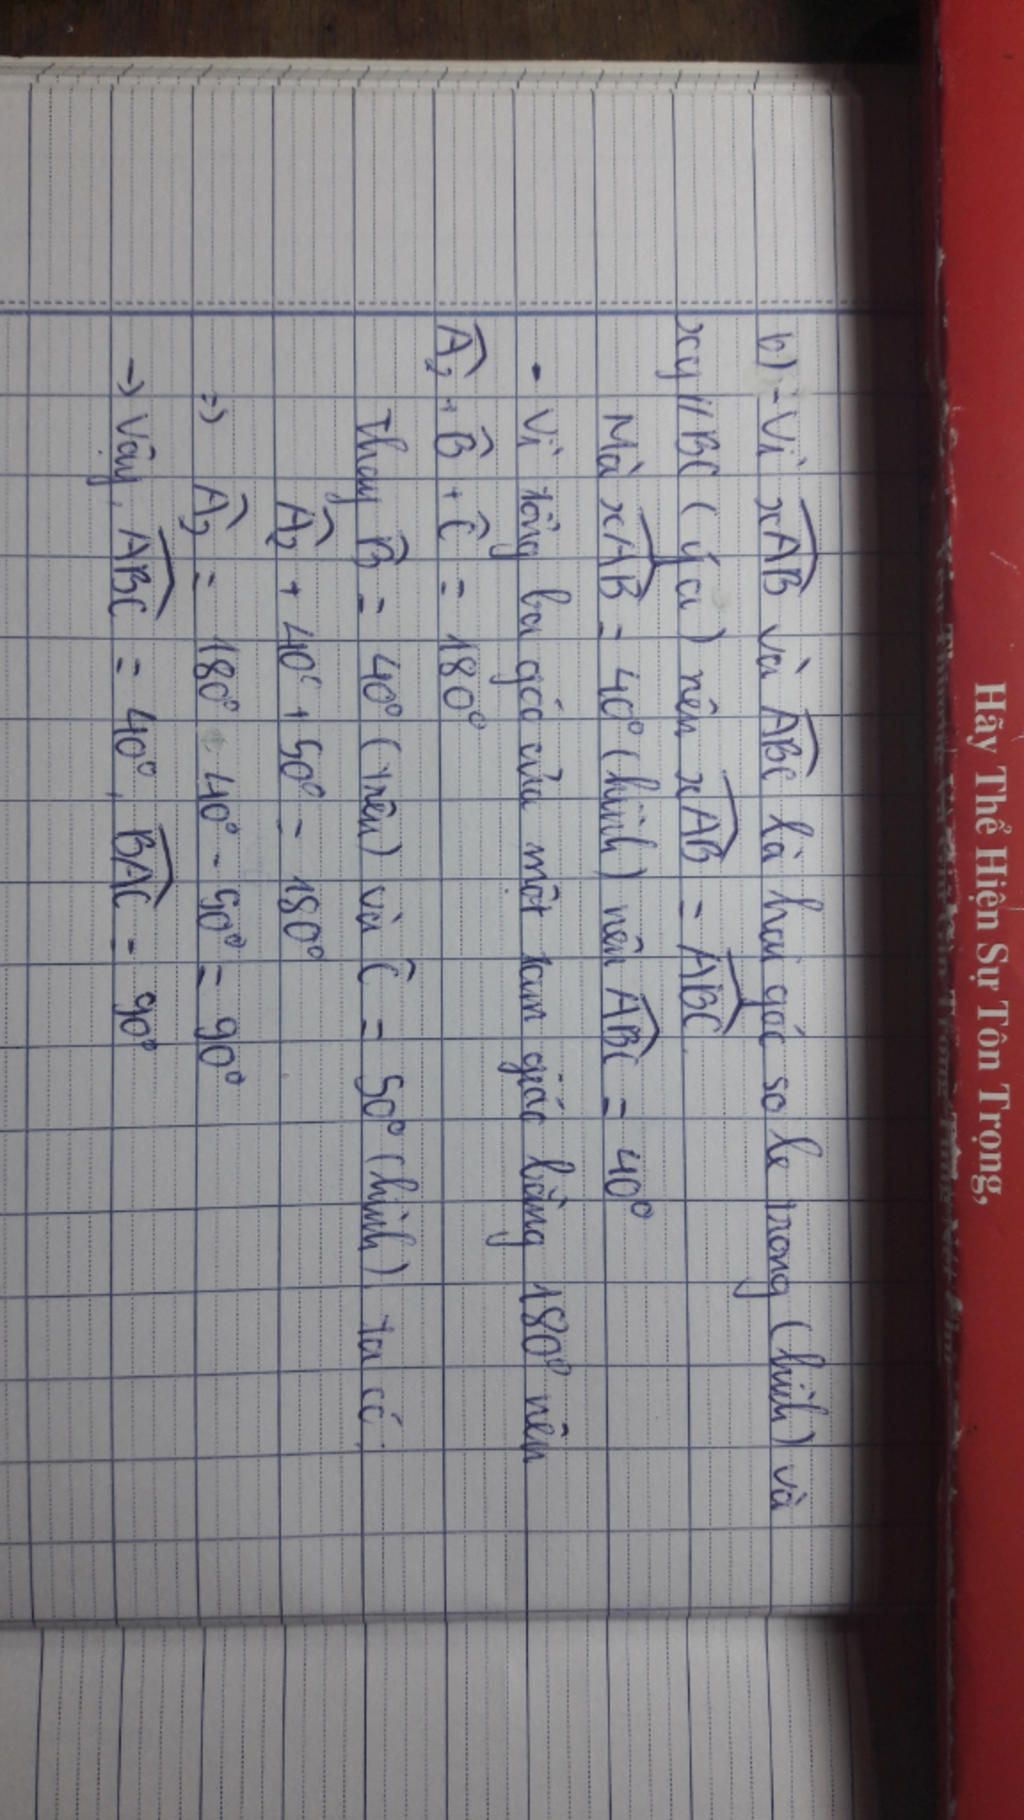 Hãy Thể Hiện Sự Tôn Trọng,
b) - Vì xAB và ABC là hai góc so le trong (hình) và
xy // BC (ý a) nên xAB = ABC
Mà xAB = 40° (hình) nên ABC = 40°
- Vì tổng ba góc của một tam giác bằng 180° nên
Â₂ + B̂ + Ĉ = 180°
Thay B̂ = 40° (trên) và Ĉ = 50° (hình) ta có:
Â₂ + 40° + 50° = 180°
=> Â₂ = 180° - 40° - 50° = 90°
-> Vậy, ABC = 40°, BAC = 90°